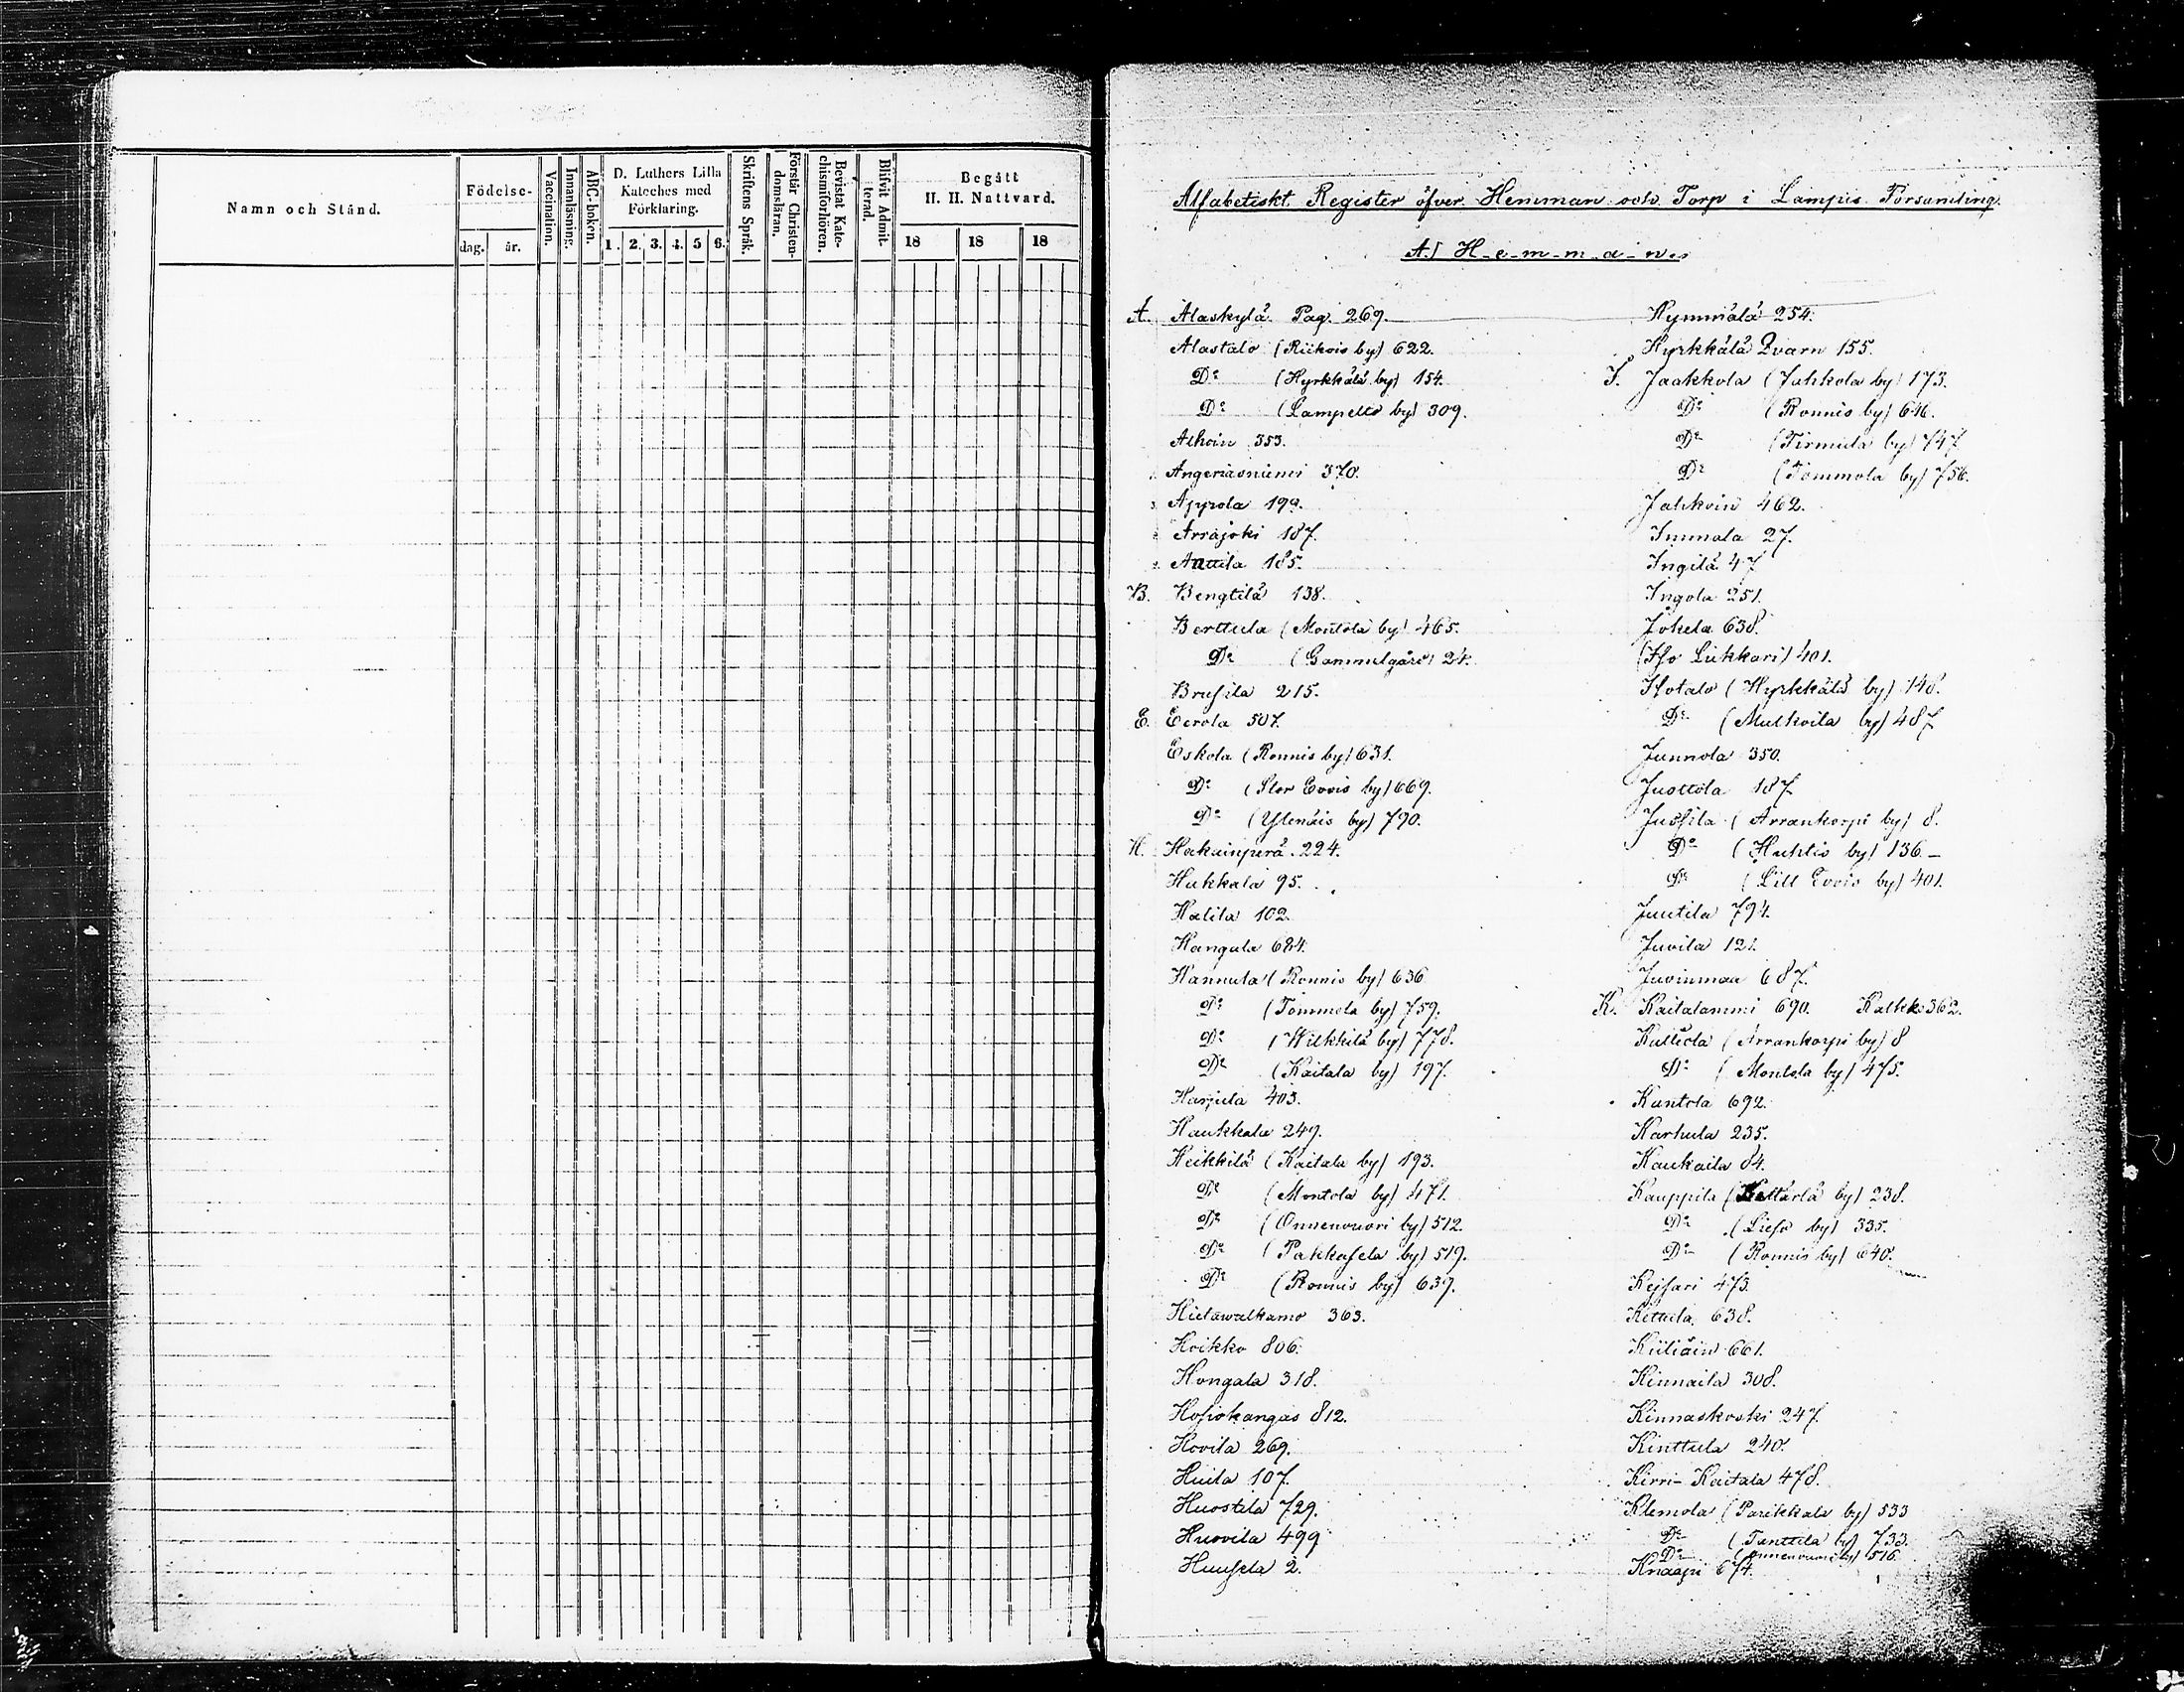 Namn och Stånd.
Födelse-
dag.
år.
Vaccination.
Innanläsning.
ABC-boken.
D. Luthers Lilla
Kateches med
Förklaring.
1. 2. 3. 4. 5 6.
Skriftens Språk.
Förstår Christen-
domsläran.
Bevistat Kate-
chismiförhören.
Blifvit Admit-
terad.
Begått
H. H. Nattvard.
18 18 18
Alfabetiskt Register öfver Hemman och Torp i Lampis Församling.
A.) Hemman
A. Alaskylä Pag. 269.
Alastalo (Riikois by) 622.
Do (Hyrkkälä by) 154.
Do (Lampelto by) 309.
Alhoin 353.
Angeriasniemi 370.
Appola 199.
Arrajoki 187.
Anttila 185.
B. Bengtilä 138.
Berttula (Montola by) 465.
Do (Gammelgård) 24.
Brusila 215.
E. Eerola 507.
Eskola (Ronnis by) 631.
Do (Stor Evois by) 669.
Do (Ylenäis by) 790.
H. Hakainperä 224.
Hakkala 95.
Halila 102.
Hangala 684.
Hannula (Ronnis by) 636
Do (Tömmola by) 759.
Do (Wilkkilä by) 778.
Do (Kaitala by) 197.
Harjula 403.
Haukkala 249.
Heikkilä (Kaitala by) 193.
Do (Montola by) 471.
Do (Onnenvuori by) 512.
Do (Pakkasela by) 519.
Do (Ronnis by) 639.
Hietawalkamo 363.
Hoikko 806.
Hongala 318.
Hosiokangas 812.
Hovila 269.
Huila 107.
Huostila 729.
Huovila 499
Huusela 2.
Hymmälä 254.
Hyrkkälä Qvarn 155.
J. Jaakkola (Jahkola by) 173.
Do (Ronnis by) 646.
Do (Tirmula by) 747
Do (Tömmola by) 756.
Jahkoin 462.
Immala 27.
Ingilä 47
Ingola 251.
Jokela 638.
(Iso Liikkari) 401.
Isotalo (Hyrkkälä by) 148.
Do (Mulkoila by) 487
Junnola 350.
Juottila 187
Jussila (Arrankorpi by) 8.
Do (Huhtis by) 136
Do (Lill Evois by) 401.
Juutila 794.
Juvila 121.
Juvinmaa 687.
K. Kaitalammi 690. Kalkko 362.
Kallola (Arrankorpi by) 8
Do (Montola by) 475.
Kantola 692.
Karhula 235.
Kaukaila 84.
Kauppila (Kattärlä by) 238.
Do (Lieso by) 335.
Do (Ronnis by) 640.
Kejsari 473.
Kettula 638.
Kiiliäin 661.
Kinnaila 308.
Kinnaskoski 247.
Kinttula 240.
Kirri-Kaitala 478.
Klemola (Parikkala by) 533
Do (Tanttila by) 733.
Do (Onnenvuori by) 516.
Knaapi 674.